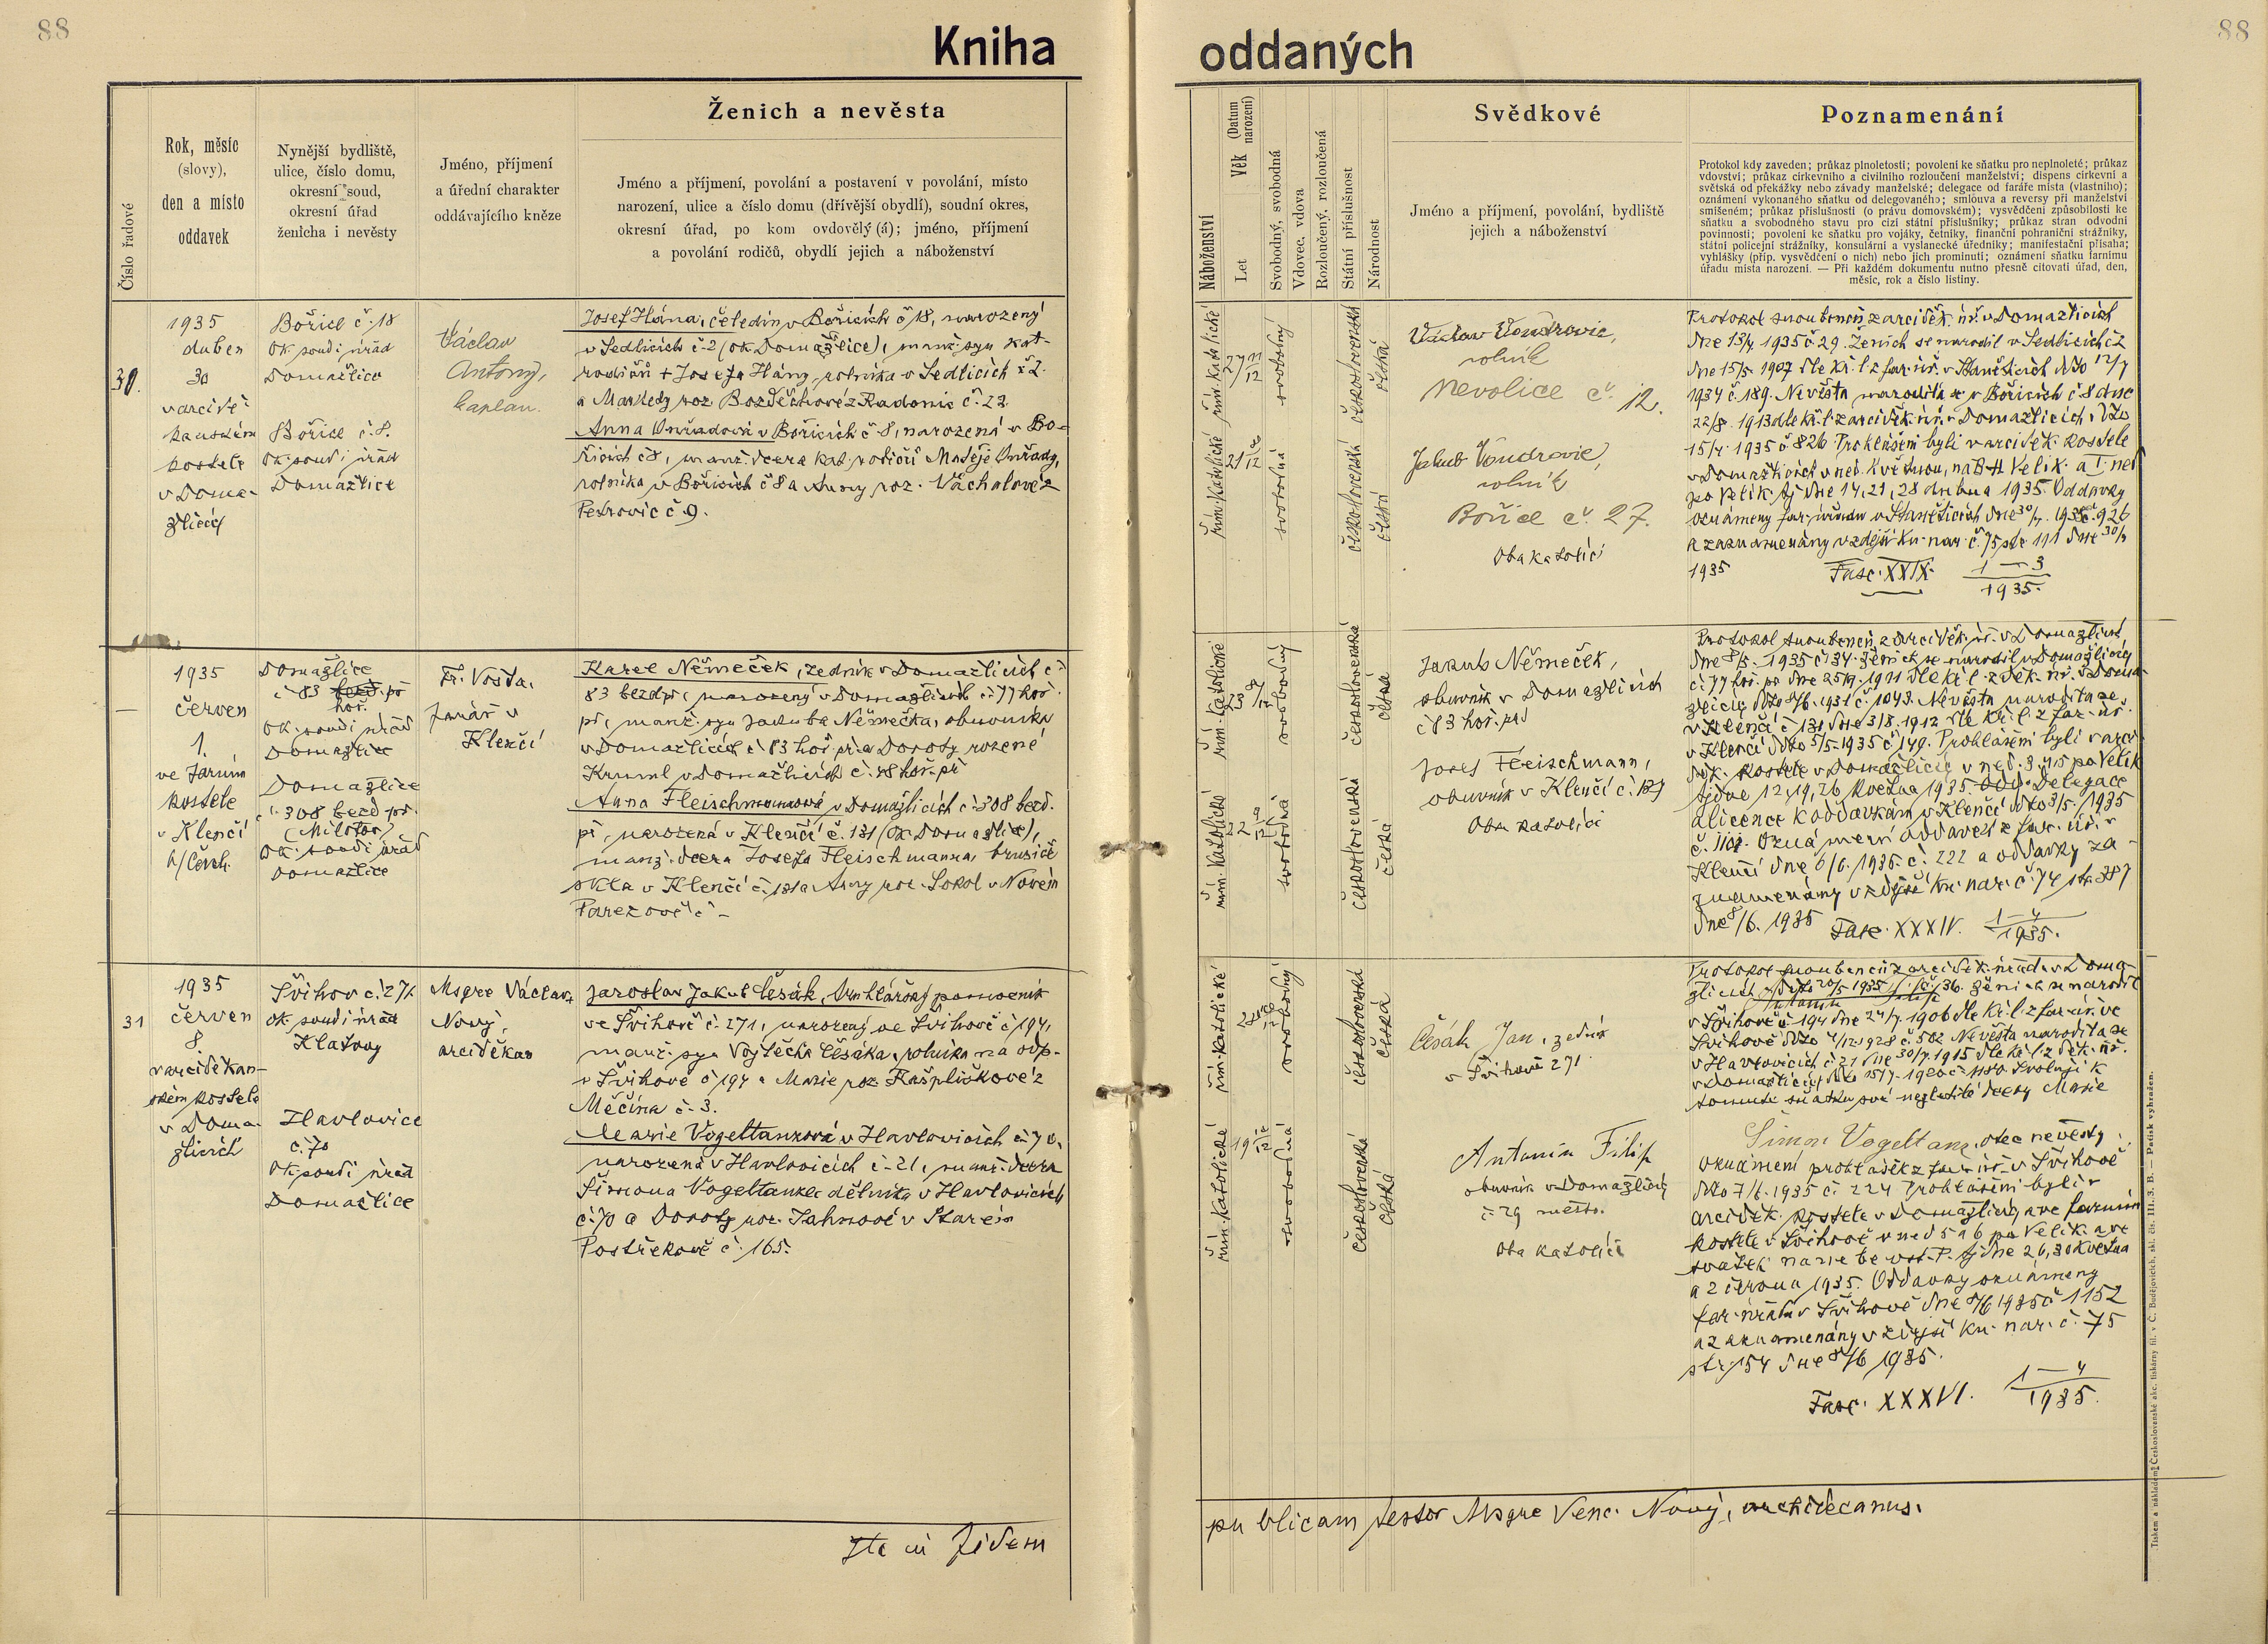 88
88
Kniha
oddaných
Číslo řadové
Rok, měsíc
(slovy),
den a místo
oddavek
Nynější bydliště,
ulice, číslo domu,
okresní soud,
okresní úřad
ženicha i nevěsty
Jméno, příjmení
a úřední charakter
oddávajícího kněze
Ženich a nevěsta
Jméno a příjmení, povolání a postavení v povolání, místo
narození, ulice a číslo domu (dřívější obydlí), soudní okres,
okresní úřad, po kom ovdověl​ý (á); jméno, příjmení
a povolání rodičů, obydlí jejich a náboženství
30.
1935
duben
30
v arcidě-
kanském
kostele
v Doma-
žlicích
Bořice č. 18
Ok. soud i úřad
Domažlice
Bořice č. 8.
Ok. soud i úřad
Domažlice
Václav
Antony,
kaplan.
Josef Hána, čeledín v Bořicích č 18, narozený
v Sedlicích č. 2 (ok. Domažlice), manž. syn kat.
rodičů + Josefa Hány, rolníka v Sedlicích č 2.
a Markedy roz. Bozděchové z Radonic č. 22.
Anna Ouřadová v Bořicích č 8, narozená v Bo-
řicích č 8, manž. dcera kat. rodičů Matěje Ouřady,
rolníka v Bořicích č 8 a Anny roz. Váchalové z
Petrovic č 9.
1935
červen
1.
ve farním
kostele
v Klenčí
p/Čerch.
Domažlice
č 83 bezd. př
hoř.
Ok. soud i úřad
Domažlice
Domažlice
č. 308 bezd př.
(Milotov)
Ok. soud i úřad
Domažlice
Fr. Vosta,
farář v
Klenčí
Karel Němeček, zedník v Domažlicích č
83 bezd př, narozený v Domažlicích č. 77 hoř.
př, manž. syn Jakuba Němečka, obuvníka
v Domažlicích č 83 hoř. př a Doroty rozené
Kruml v Domažlicích č. 48 hoř. př
Anna Fleischmannová v Domažlicích č. 308 bezd.
př, narozená v Klenčí č. 131 (ok. Domažlice),
manž. dcera Josefa Fleischmanna, brusiče
skla v Klenčí č. 131 a Anny roz. Sokol v Novém
Pařezově č –
31
1935
červen
8
v arciděkan-
ském kostele
v Doma-
žlicích
Švihov č. 271
Ok. soud i úřad
Klatovy
Havlovice
č. 70
Ok. soud i úřad
Domažlice
Msgre Václav
Nový,
arciděkan
Jaroslav Jakub Čésák, truhlářský pomocník
ve Švihově č. 271, narozený ve Švihově č 194,
manž. syn Vojtěcha Čésáka, rolníka na odp.
v Švihově č 194 a Marie roz. Kašpliškové z
Měčína č. 3.
Marie Vogeltanzová v Havlovicích č. 70,
narozená v Havlovicích č. 21, manž. dcera
Šimona Vogeltanze dělníka v Havlovicích
č. 70 a Doroty roz. Jahnové v Starém
Postřekově č. 165.
Náboženství
Věk (Datum narození)
Let
Svobodný, svobodná
Vdovec, vdova
Rozloučený, rozloučená
Státní příslušnost
Národnost
Svědkové
Jméno a příjmení, povolání, bydliště
jejich a náboženství
Poznamenání
Protokol kdy zaveden; průkaz plnoletosti; povolení ke sňatku pro neplnoleté; průkaz
vdovství; průkaz církevního a civilního rozloučení manželství; dispens církevní a
světská od překážky nebo závady manželské; delegace od faráře místa (vlastního);
oznámení vykonaného sňatku od delegovaného; smlouva a reversy při manželství
smíšeném; průkaz příslušnosti (o právu domovském); vysvědčení způsobilosti ke
sňatku a svobodného stavu pro cizí státní příslušníky; průkaz stran odvodní
povinnosti; povolení ke sňatku pro vojáky, četníky, finanční pohraniční strážníky,
státní policejní strážníky, konsulární a vyslanecké úředníky; manifestační přísaha;
vyhlášky (příp. vysvědčení o nich) nebo jich prominutí; oznámení sňatku farnímu
úřadu místa narození. — Při každém dokumentu nutno přesně citovati úřad, den,
měsíc, rok a číslo listiny.
řím. katolické
27 11/12
svobodný
československá
česká
řím. katolické
21 8/12
svobodná
československá
česká
Václav Vondrovic,
rolník
Nevolice č. 12.
Jakub Vondrovic,
rolník
Bořice č. 27.
Oba katolíci
Protokol snoubenců z arciděk. úř. v Domažlicích
dne 13/4 1935 č. 29. Ženich se narodil v Sedlicích č 2
dne 15/5. 1907 dle kř. l. z far. úř. v Staněticích ddo 12/7
1934 č. 189. Nevěsta narodila se v Bořicích č 8 dne
22/8. 1913 dle kř. l. z arciděk. úř. v Domažlicích, ddo
15/4. 1935 č 826. Prohlášeni byli v arciděk. kostele
v Domažlicích v ned. Květnou, na B. H. Velik. a I. ned
po Velik. tj dne 14, 21, 28 dubna 1935. Oddavky
oznámeny far. úřadu v Staněticích dne 30/4. 1935 č. 926
a zaznamenány v zdejší kn. nar. č. 75 str 111 dne 30/4
1935 Fasc. XXIX. 1–3
1935.
řím. katolické
23 8/12
svobodný
československá
česká
řím. katolické
22 9/12
svobodná
československá
česká
Jakub Němeček,
obuvník v Domažlicích
č 83 hoř. př
Josef Fleischmann,
obuvník v Klenčí č. 127
Oba katolíci
Protokol snoubenců z arciděk. úř. v Domažlicích
dne 8/5. 1935 č 34. Ženich se narodil v Domažlicích
č. 77 hoř. př dne 25/9. 1911 dle kř. l. z děk. úř. v Doma-
žlicích ddo 8/6. 1931 č. 1043. Nevěsta narodila se
v Klenčí č 131 dne 3/8. 1912 dle kř. l. z far. úř.
v Klenčí ddo 5/5. 1935 č 149. Prohlášeni byli v arci
děk. kostele v Domažlicích v ned. 3. 4. 5 po Velik
tj dne 12, 19, 26 května 1935. Odd. Delegace
a licence k oddavkám v Klenčí ddo 31/5. 1935
č. 1101. Oznámení oddavek z far. úř. v
Klenčí dne 6/6. 1935. č. 222 a oddavky za-
znamenány v zdejší kn. nar. č. 74 str 387
dne 8/6. 1935 Fasc. XXXIV. 1–4
1935.
řím. katolické
svobodný
československá
česká
řím. katolické
svobodná
československá
česká
Čésák Jan, zedník
v Švihově 271
Antonín Filip
obuvník v Domažlicích
č. 29 město.
Oba katolíci
Protokol snoubenců z arciděk. úřadu v Doma-
žlicích ddto 20/5 1935 č. 36. Ženich se narodil
Antonín Filip
v Švihově č. 194 dne 24/7. 1906 dle kř. l. z far. úř. ve
Švihově ddo 4/12. 1928 č. 502 Nevěsta narodila se
v Havlovicích č. 21 dne 30/7. 1915 dle kř. l. z děk. úř.
v Domažlicích ddo 15/7. 1920 č. 1180. Svoluji k
tomuto sňatku své nezletilé dcery Marie
Šimon Vogeltanz, otec nevěsty
oznámení prohlášek z far. úř. v Švihově
ddo 7/6. 1935 č. 224 Prohlášeni byli v
arciděk. kostele v Domažlicích a ve farním
kostele v Švihově v ned 5 a 6 po Velik. a ve
svátek na nebe vst. P. tj dne 26, 30 května
a 2 června 1935. Oddavky oznámeny
far. úřadu v Švihově dne 8/6 1935 č 1152
a zaznamenány v zdejší kn. nar. č. 75
str. 154 dne 8/6 1935.
Fasc. XXXVI. 1–4
1935.
Ita in fidem
publicam testor Msgre Venc. Nový, archidecanus.
Tiskem a nákladem Československé akc. tiskárny fil. v Č. Budějovicích, skl. čís. III. 3. B. — Patisk vyhražen.